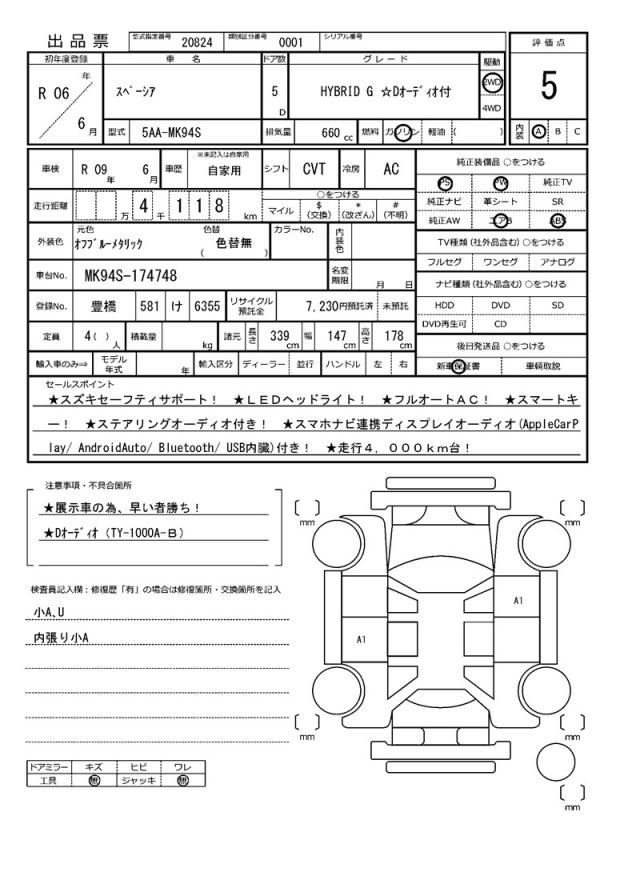 出品票 型式指定番号 20824 類別区分番号 0001 シリアル番号
初年度登録 車名 ドア数 グレード 駆動 評価点
R 06 年 6 月 スペーシア 5 D HYBRID G ☆Dオーディオ付 2WD 4WD 5
型式 5AA-MK94S 排気量 660 cc 燃料 ガソリン 軽油 ( ) 内装 A B C
車検 R 09 年 6 月 車歴 ※未記入は自家用 自家用 シフト CVT 冷房 AC 純正装備品 ○をつける
PS PW 純正TV
走行距離 万 4 千 1 1 8 km ○をつける
マイル $ (交換) * (改ざん) # (不明)
純正ナビ 革シート SR
純正AW エアB ABS
外装色 元色 オフブルーメタリック 色替 ( 色替無 ) カラーNo. 内装色
TV種類 (社外品含む) ○をつける
フルセグ ワンセグ アナログ
車台No. MK94S-174748 名変期限 月 日
ナビ種類 (社外品含む) ○をつける
登録No. 豊橋 581 け 6355 リサイクル預託金 7,230円預託済 未預託
HDD DVD SD
DVD再生可 CD
定員 4 ( ) 人 積載量 kg 諸元 長さ 339 cm 幅 147 cm 高さ 178 cm
後日発送品 ○をつける
輸入車のみ⇒ モデル年式 年 輸入区分 ディーラー 並行 ハンドル 左 右
新車保証書 車輌取説
セールスポイント
★スズキセーフティサポート！ ★ＬＥＤヘッドライト！ ★フルオートＡＣ！ ★スマートキ
ー！ ★ステアリングオーディオ付き！ ★スマホナビ連携ディスプレイオーディオ(AppleCarP
lay/ AndroidAuto/ Bluetooth/ USB内臓)付き！ ★走行４，０００ｋｍ台！
注意事項・不具合箇所
★展示車の為、早い者勝ち！
★Dオーディオ (TY-1000A-B)
検査員記入欄：修復歴「有」の場合は修復箇所・交換箇所を記入
小A､U
内張り小A
[ ] mm
[ ] mm
A1
A1
[ ] mm
[ ] mm
[ ] mm
ドアミラー キズ ヒビ ワレ
工具 無 ジャッキ 無